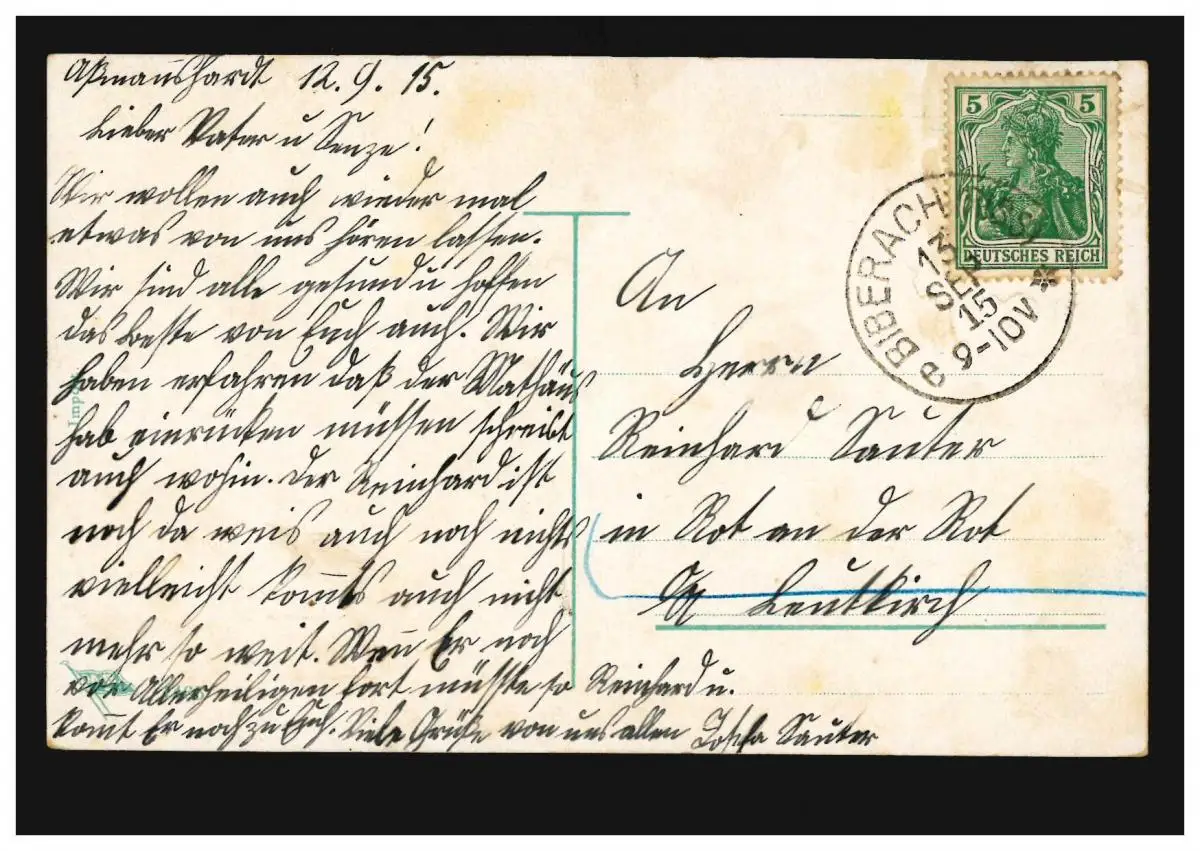 Aßmannshardt 12.9.15.
Lieber Vater u Senze!
Wir wollen auch wieder mal
etwas von uns hören lassen.
Wir sind alle gesund u hoffen
das beste von Euch auch. Wir
haben erfahren daß der Mathäus
hab einrücken müssen schreibt
auch wohin. Der Reinhard ist
noch da weis auch noch nichts
vielleicht kom̅ts auch nicht
mehr so weit. Wen̅ Er noch
vor Allerheiligen fort müsste so
kom̅t Er noch zu Euch. Viele Grüße von uns allen
Reinhard u.
Sauter
DEUTSCHES REICH
5 5
BIBERACH
13
SEP
15
9-10V
e
An
Herrn
Reinhard Sauter
in Rot an der Rot
OA Leutkirch